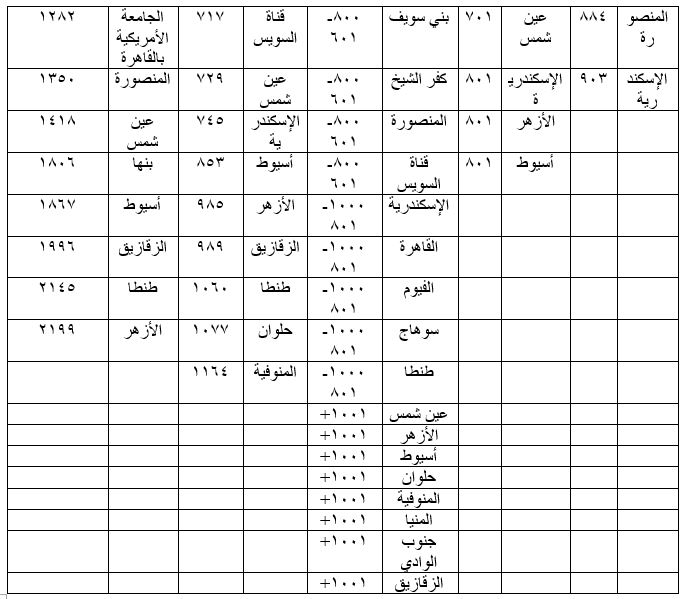 المنصو
رة
٨٨٤
عين
شمس
٧٠١
بني سويف
٨٠٠-
٦٠١
قناة
السويس
٧١٧
الجامعة
الأمريكية
بالقاهرة
١٢٨٢
الإسكند
رية
٩٠٣
الإسكندري
ة
٨٠١
كفر الشيخ
٨٠٠-
٦٠١
عين
شمس
٧٢٩
المنصورة
١٣٥٠
الأزهر
٨٠١
المنصورة
٨٠٠-
٦٠١
الإسكندر
ية
٧٤٥
عين
شمس
١٤١٨
أسيوط
٨٠١
قناة
السويس
٨٠٠-
٦٠١
أسيوط
٨٥٣
بنها
١٨٠٦
الإسكندرية
١٠٠٠-
٨٠١
الأزهر
٩٨٥
أسيوط
١٨٦٧
القاهرة
١٠٠٠-
٨٠١
الزقازيق
٩٨٩
الزقازيق
١٩٩٦
الفيوم
١٠٠٠-
٨٠١
طنطا
١٠٦٠
طنطا
٢١٤٥
سوهاج
١٠٠٠-
٨٠١
حلوان
١٠٧٧
الأزهر
٢١٩٩
طنطا
١٠٠٠-
٨٠١
المنوفية
١١٦٤
عين شمس
١٠٠١+
الأزهر
١٠٠١+
أسيوط
١٠٠١+
حلوان
١٠٠١+
المنوفية
١٠٠١+
المنيا
١٠٠١+
جنوب
الوادي
١٠٠١+
الزقازيق
١٠٠١+